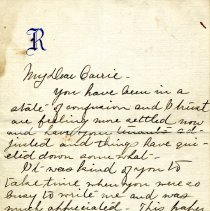 R
My dear Carrie -
You have been in a
state of confusion and I trust
are feeling more settled now
and have your tenants ad-
justed and things have qui-
eted down somewhat -
It was kind of you to
take time when you were so
busy to write me and was
much appreciated. This paper